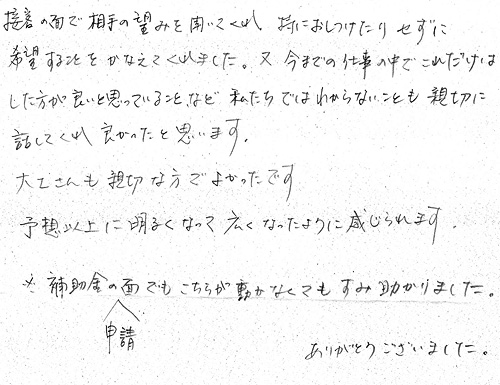 接客の面で相手の望みを聞いてくれ 特におしつけたりせずに
希望することをかなえてくれました。又今までの仕事の中でこれだけは
した方が良いと思っていることなど 私たちではわからないことも親切に
話してくれ良かったと思います。
大工さんも親切な方でよかったです
予想以上に明るくなって広くなったように感じられます。
※補助金の面でもこちらが動かなくてもすみ助かりました。
申請
ありがとうございました。